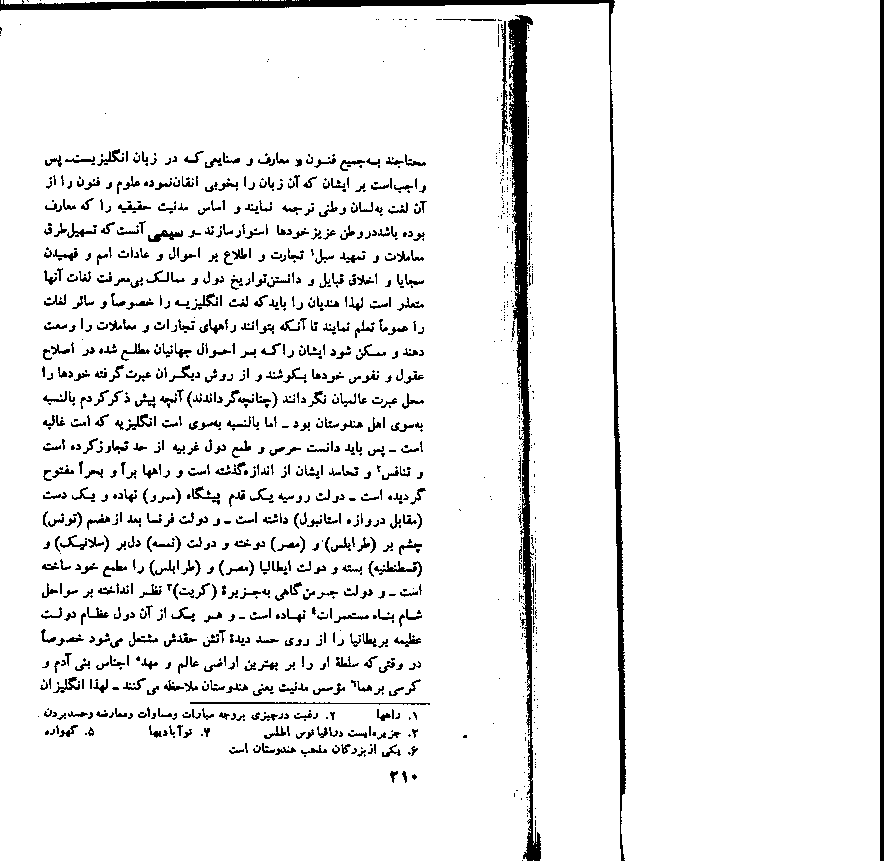 محتاجند بـه‌جمیع فنـون و معارف و صنایعی‌کـه در زبان انگلیزیست ـ پس
واجب‌است بر ایشان که‌آن زبان را بخوبی اتقان‌نموده علوم و فنون را از
آن لغت به‌لسان وطنی ترجمه نمایند و اساس مدنیت حقیقیه را که معارف
بوده باشد در وطن عزیز خودها استوار سازند ـ و سیمی آنست که تسهیل طرق
معاملات و تمهید سبل۱ تجارت و اطلاع بر احوال و عادات امم و فهمیدن
سجایا و اخلاق قبایل و دانستن‌تواریخ دول و ممالک بی‌معرفت لغات آنها
متعذر است لهذا هندیان را باید که لغت انگلیزیـه را خصوصاً و سائر لغات
را عموماً تعلم نمایند تا آنکه بتوانند راههای تجارات و معاملات را وسعت
دهند و ممکن شود ایشان را کـه بـر احـوال جهانیان مطلـع شده در اصلاح
عقول و نفوس خودها بکوشند و از روش دیگـران عبرت گرفته خودها را
محل عبرت عالمیان نگردانند (چنانچه‌گرداندند) آنچه پیش ذکر کردم بالنسبه
به‌سوی اهل هندوستان بود ـ اما بالنسبه به‌سوی امت انگلیزیه که امت غالبه
است ـ پس باید دانست حرص و طمع دول غربیه از حد تجاوز کرده است
و تنافس۲ و تحاسد ایشان از اندازه‌گذشته است و راهها براً و بحراً مفتوح
گردیده است ـ دولت روسیه یـک قدم پیشگاه (مـرو) نهاده و یـک دست
(مقابل دروازه استانبول) داشته است ـ و دولت فرنسا بعد از هضم (تونس)
چشم بر (طرابلس) و (مصر) دوخته و دولت (نمسه) دل‌بر (سلانیـک) و
(قسطنطنیه) بسته و دولت ایطالیا (مصر) و (طرابلس) را مطمع خود ساخته
است ـ و دولت جـرمن‌گاهی به‌جـزیرهٔ (کریت)۳ نظـر انداخته بر سواحل
شـام بنـاء مستعمرات۴ نهـاده است ـ و هـر یـک از آن دول عظـام دولـت
عظیمه بریطانیا را از روی حسد دیدهٔ آتش حقدش مشتعل می‌شود خصوصاً
در وقتی‌که سلطهٔ او را بر بهترین اراضی عالم و مهد۵ اجناس بنی آدم و
کرسی برهما۶ مؤسس مدنیت یعنی هندوستان ملاحظه می‌کنند ـ لهذا انگلیزان
۱. راهها ۲. رغبت درچیزی بروجه مبارات ومساوات ومعارضه وحسدبردن.
۳. جزیره‌ایست دراقیانوس اطلس ۴. نوآبادیها ۵. گهواره
۶. یکی از بزرگان مذهب هندوستان است
۲۱۰